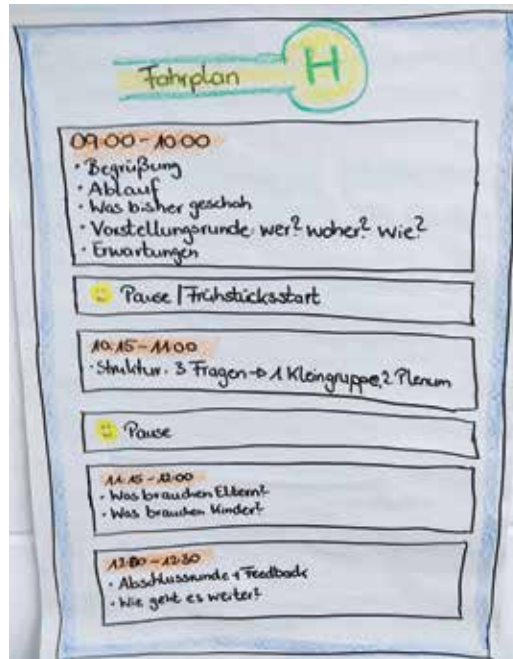 Fahrplan H
09:00-10:00
• Begrüßung
• Ablauf
• Was bisher geschah
• Vorstellungsrunde: wer? woher? wie?
• Erwartungen
Pause | Frühstücksstart
10:15-11:00
• Struktur: 3 Fragen → 1 Kleingruppe, 2 Plenum
Pause
11:15-12:00
• Was brauchen Eltern?
• Was brauchen Kinder?
12:00-12:30
• Abschlussrunde + Feedback
• Wie geht es weiter?